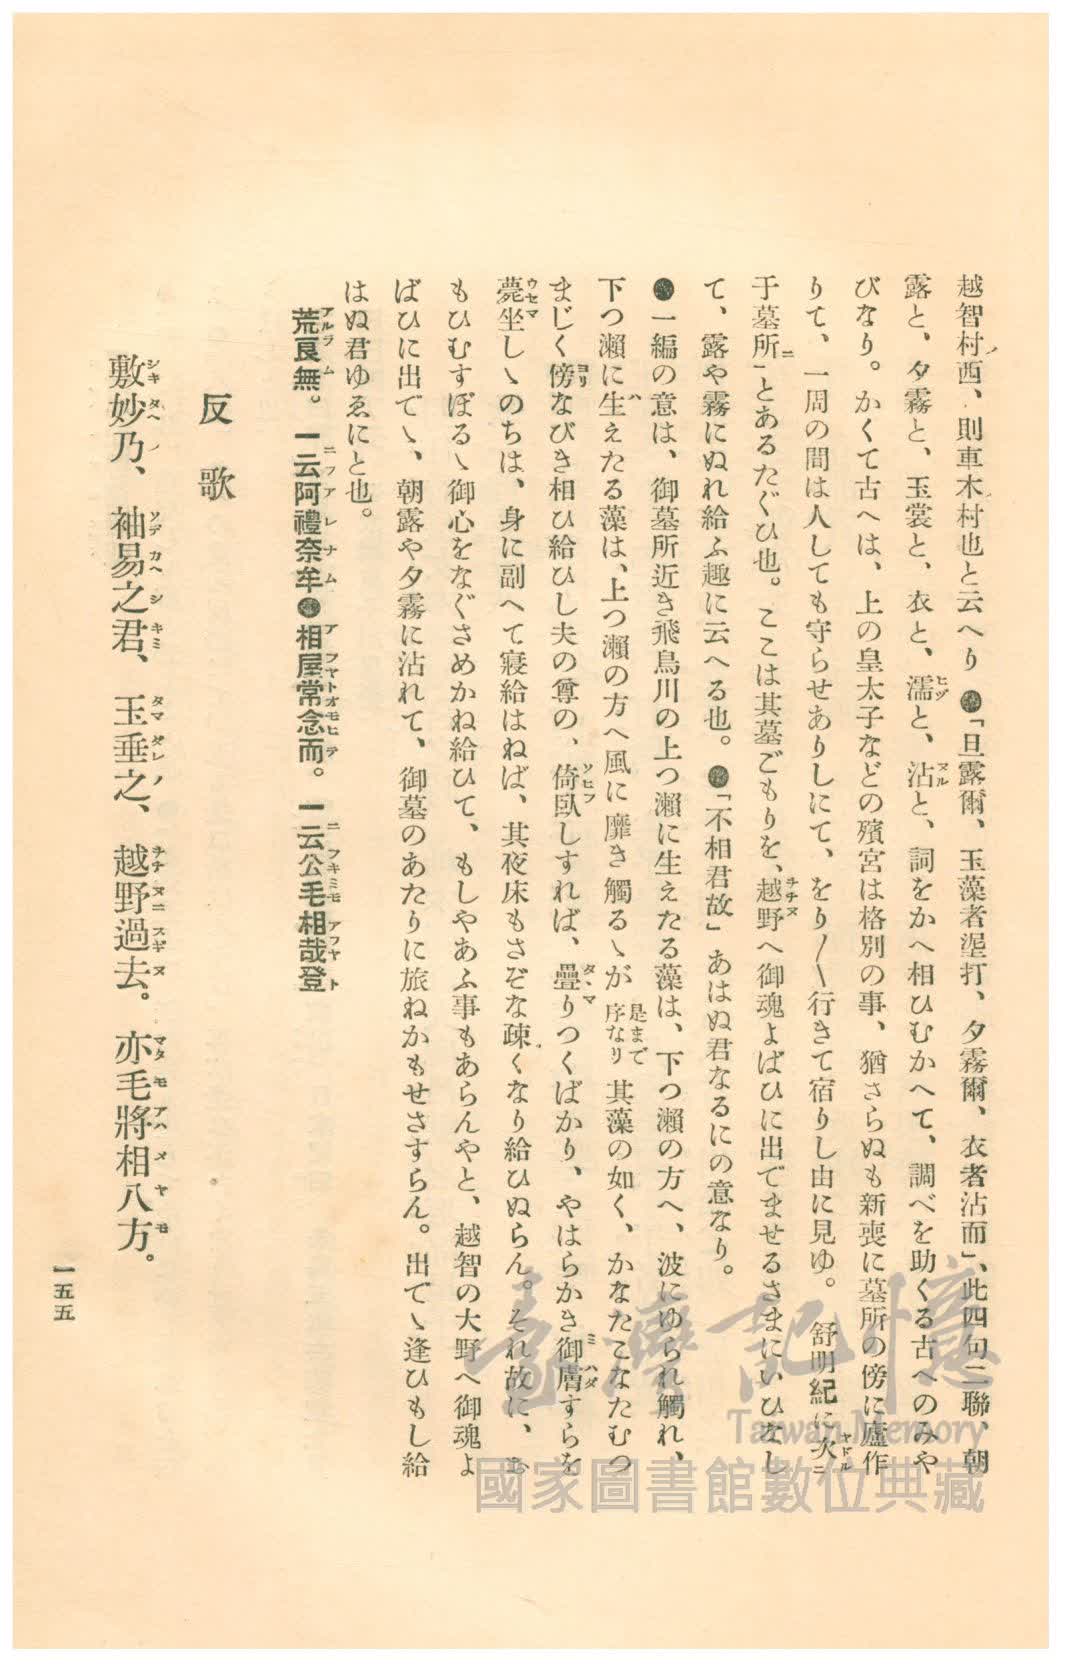 越智村ノ西、則車木村也と云へり ●「旦露爾、玉藻者埿打、夕霧爾、衣者沾而」、此四句二聯、朝
露と、夕霧と、玉裳と、衣と、濡ヒヅと、沾ヌルと、詞をかへ相ひむかへて、調べを助くる古へのみや
びなり。かくて古へは、上の皇太子などの殯宮は格別の事、猶さらぬも新喪に墓所の傍に廬作
りて、一周の間は人しても守らせありしにて、をり〳〵行きて宿りし由に見ゆ。 舒明紀に次ヤドル二
于墓所ニ一とあるたぐひ也。ここは其墓ごもりを、越野ヲチヌへ御魂よばひに出でませるさまにいひなし
て、露や霧にぬれ給ふ趣に云へる也。●「不相君故」あはぬ君なるにの意なり。
●一編の意は、御墓所近き飛鳥川の上つ瀬に生えたる藻は、下つ瀬の方へ、波にゆられ觸れ、
下つ瀬に生ハえたる藻は、上つ瀬の方へ風に靡き觸るゝが 是まで序なり 其藻の如く、かなたこなたむつ
まじく傍ヨリなびき相ひ給ひし夫の尊の、倚臥ソヒフしすれば、疊タヽマりつくばかり、やはらかき御膚ミハダすらを
薨坐ウセマしゝのちは、身に副へて寢給はねば、其夜床もさぞな疎くなり給ひぬらん。それ故に、
もひむすぼるゝ御心をなぐさめかね給ひて、もしやあふ事もあらんやと、越智の大野へ御魂よ
ばひに出でゝ、朝露や夕霧に沾れて、御墓のあたりに旅ねかもせさすらん。出でゝ逢ひもし給
はぬ君ゆゑにと也。
荒良無アルラム。 一云阿禮奈牟ニフアレナム●相屋常念而アフヤトオモヒテ。 一云公毛相哉登ニフキミモアフヤト
反歌
敷妙乃シキタヘノ、袖易之君ソデカヘシキミ、玉垂之タマダレノ、越野過去ヲチヌニスギヌ。亦毛將相八方マタモアハメヤモ。
一五五
臺灣記憶
Taiwan Memory
國家圖書館數位典藏